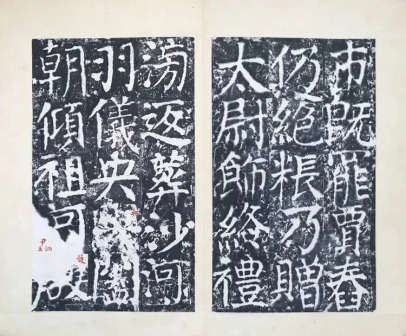 市既罷賈舂
仍絕粻乃贈
太尉飾終禮
滂返葬沙河
羽儀央
朝傾祖